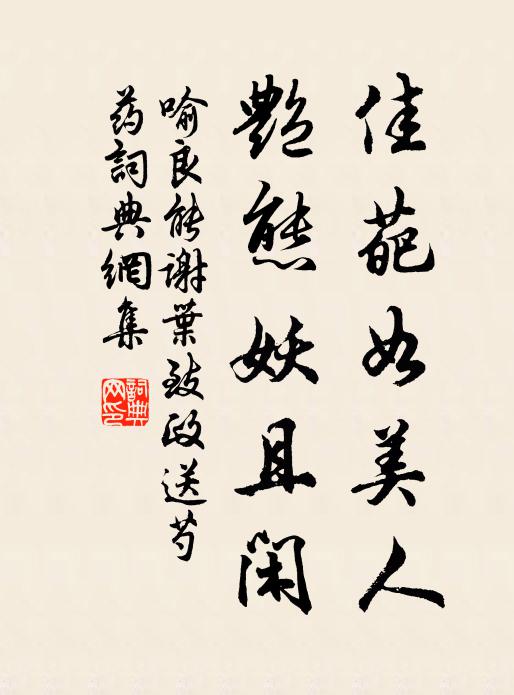 佳葩如美人
艷態妖且閑
喻良能謝葉致政送芍
药詞典網集
詞典
网印